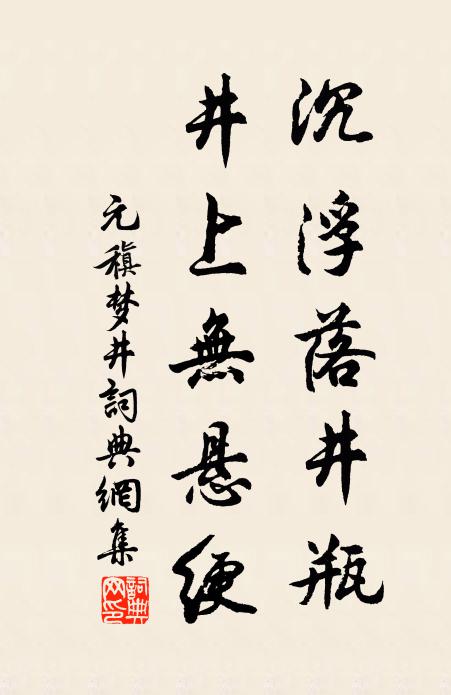 沉浮落井瓶
井上無悬绠
元稹梦井詞典網集
詞典网印